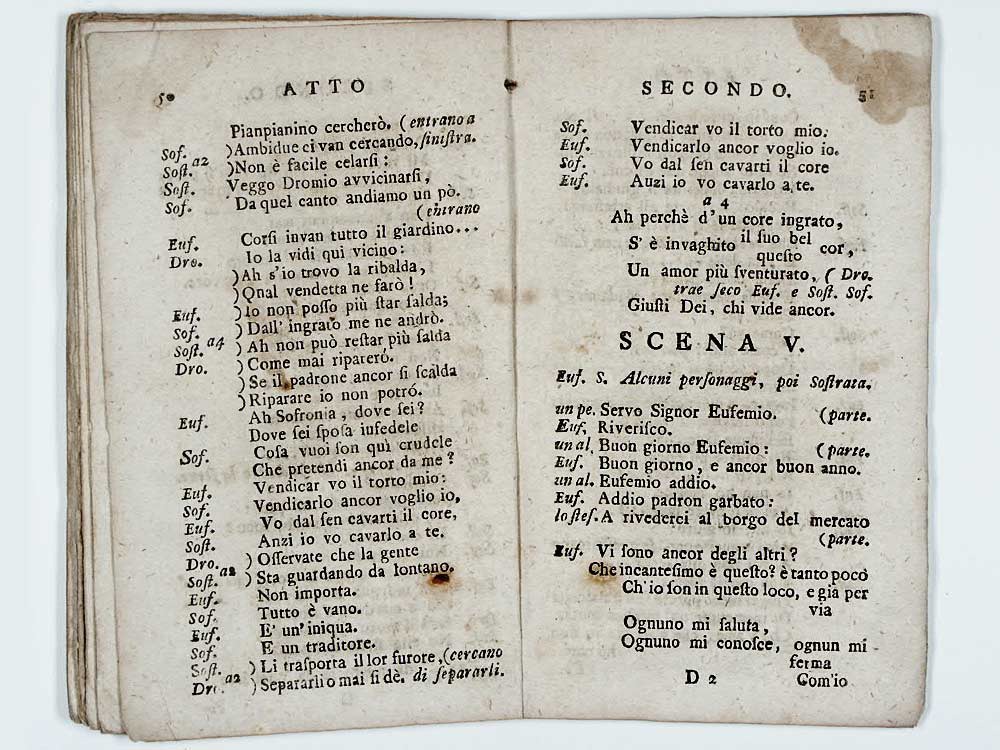 50
ATTO
Pianpianino cercherò. (entrano a
Sof. ) Ambidue ci van cercando, ſiniſtra.
Soſt. a2 ) Non è facile celarſi:
Soſt. Veggo Dromio avvicinarſi,
Sof. Da quel canto andiamo un pò.
(entrano
Euf. Corſi invan tutto il giardino...
Dro. Io la vidi quì vicino:
) Ah s'io trovo la ribalda,
) Qnal vendetta ne farò!
Euf. ) Io non poſſo più ſtar ſalda;
Sof. ) Dall' ingrato me ne andrò.
Soſt. a4 ) Ah non può reſtar più ſalda
Dro. ) Come mai riparerò.
) Se il padrone ancor ſi ſcalda
) Riparare io non potrò.
Euf. Ah Sofronia, dove ſei?
Dove ſei ſpoſa infedele
Sof. Coſa vuoi ſon quì crudele
Che pretendi ancor da me?
Euf. Vendicar vo il torto mio:
Sof. Vendicarlo ancor voglio io,
Euf. Vo dal ſen cavarti il core,
Soſt. Anzi io vo cavarlo a te.
Dro. ) Oſſervate che la gente
Soſt. a2 ) Sta guardando da lontano.
Euf. Non importa.
Sof. Tutto è vano.
Euf. E' un' iniqua.
Sof. E un traditore.
Soſt. ) Li traſporta il lor furore, (cercano
Dro. a2 ) Separarli o mai ſi dè. di ſepararli.
SECONDO.
51
Sof. Vendicar vo il torto mio.
Euf. Vendicarlo ancor voglio io.
Sof. Vo dal ſen cavarti il core
Euf. Auzi io vo cavarlo a te.
a 4
Ah perchè d'un core ingrato,
S' è invaghito il ſuo bel cor,
queſto
Un amor più ſventurato, ( Dro.
trae ſeco Euf. e Soſt. Sof.
Giuſti Dei, chi vide ancor.
SCENA V.
Euf. S. Alcuni perſonaggi, poi Soſtrata.
un pe. Servo Signor Eufemio. (parte.
Euf. Riveriſco.
un al. Buon giorno Eufemio: (parte.
Euf. Buon giorno, e ancor buon anno.
un al. Eufemio addio.
Euf. Addio padron garbato:
lo ſteſ. A rivederci al borgo del mercato
(parte.
Euf. Vi ſono ancor degli altri?
Che incanteſimo è queſto? è tanto poco
Ch'io ſon in queſto loco, e già per
via
Ognuno mi ſaluta,
Ognuno mi conoſce, ognun mi
ferma
D 2
Com'io